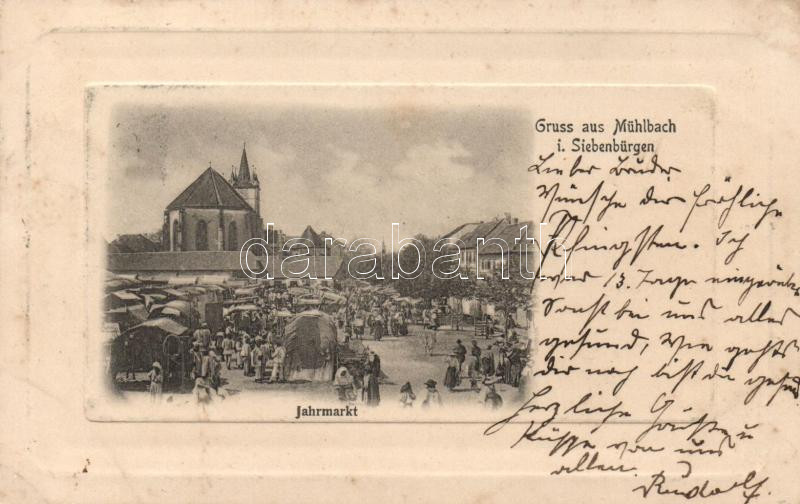 Gruss aus Mühlbach
i. Siebenbürgen
Lieber Bruder
Wünsche dir fröhliche
Pfingsten. Ich
war 13 Tage eingerückt
Sonst bei uns alles
gesund, wie gehts
dir noch bist du gesund
Herzliche Grüsse u
Küsse von uns
allen
Rudolf.
Jahrmarkt
darabanth